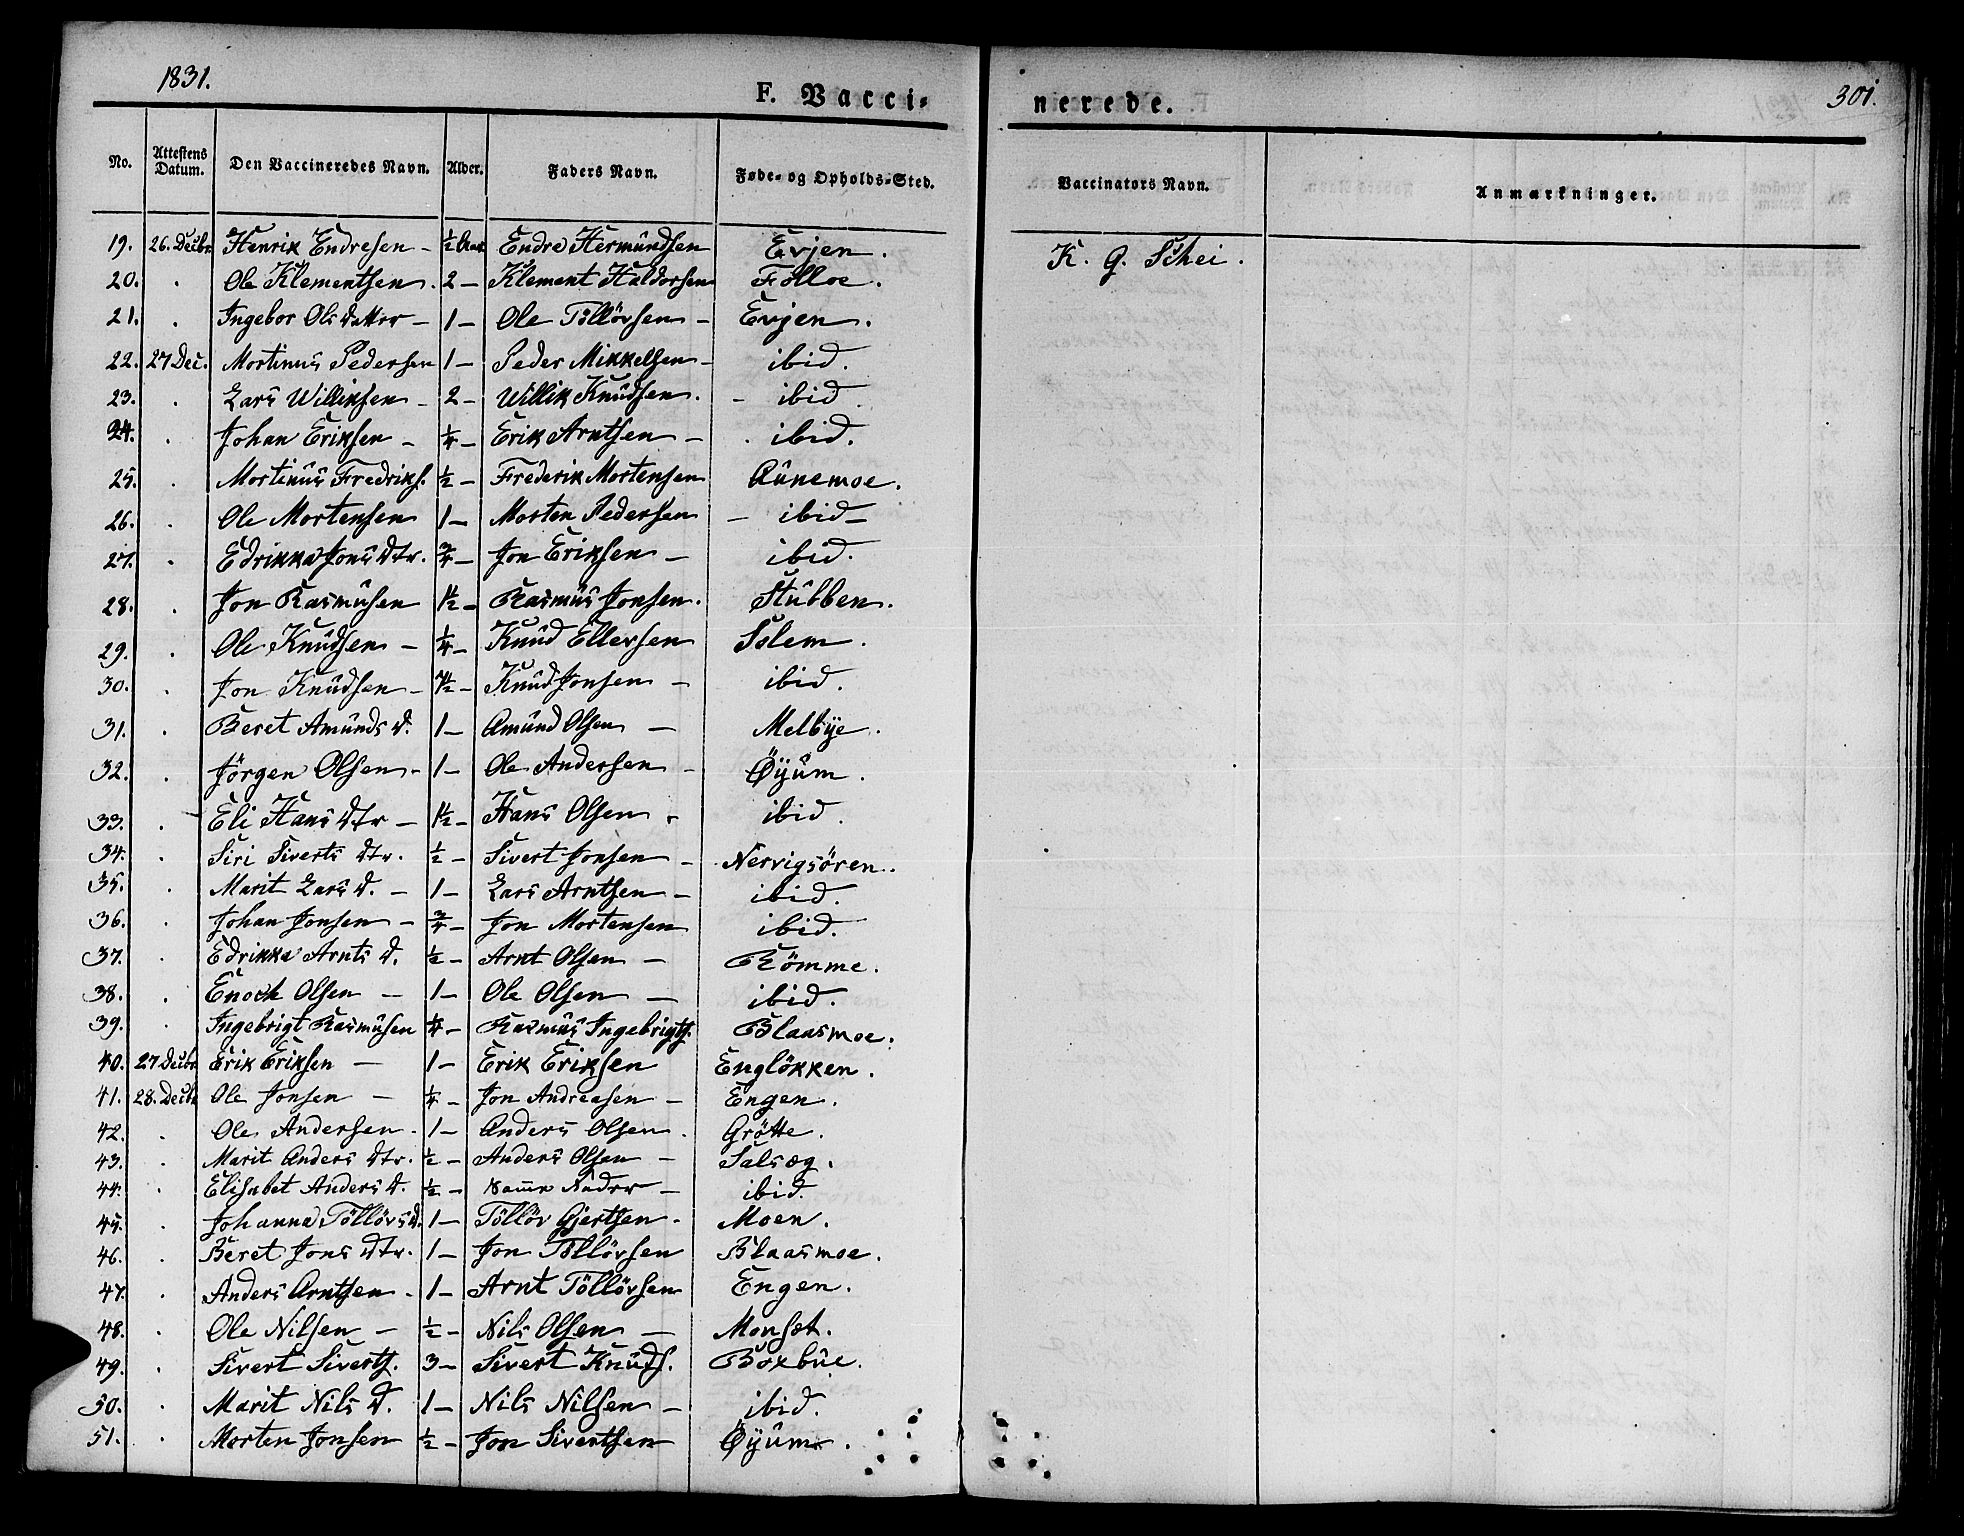 1831.
F. Vacci-
nerede.
301.
No. Attestens Datum. Den Vaccineredes Navn. Alder. Faders Navn. Føde- og Opholds-Sted. Vaccinators Navn. Anmærkninger.
19. 26. Decbr Henrik Endresen - ½ Aar Endre Hermundsen Evjen. K. G. Schei.
20. . Ole Klementsen. 2 - Klement Haldorsen Folloe.
21. . Ingebor Olsdatter - 1 - Ole Töllövsen - Evjen.
22. 27 Dec. Mortinus Pedersen 1 - Peder Mikkelsen - ibid.
23. . Lars Williksen - 2 - Willik Knudsen. - ibid.
24. . Johan Eriksen - ¼ - Erik Arntsen - . ibid.
25. . Mortinus Fredriks. ½ - Frederik Mortensen Aunemoe.
26. . Ole Mortensen 1 - Morten Pedersen - ibid -
27. . Edrikka Jons Dtr. ¾ - Jon Eriksen - ibid.
28. . Jon Rasmusen 1½ - Rasmus Jonsen. Stubben.
29. . Ole Knudsen - ¼ - Knud Ellevsen Solem.
30. . Jon Knudsen - Knud Jonsen - ibid.
31. . Beret Amunds D. 1 - Amund Olsen - Melbye.
32. . Jörgen Olsen - 1 - Ole Andersen - Øyum.
33. . Eli Hans Dtr - 1½ - Hans Olsen - ibid.
34. . Siri Siverts Dtr. ½ - Sivert Jonsen - Nervigsören.
35. . Marit Lars D. - 1 - Lars Arntsen - ibid.
36. . Johan Jonsen - ¾ - Jon Mortensen ibid.
37. . Edrikka Arnts D. ½ - Arnt Olsen - Römme.
38. . Enoch Olsen - 1 - Ole Olsen - ibid.
39. . Ingebrigt Rasmusen ¼ - Rasmus Ingebrigts. Blaasmoe.
40. 27. Decbr Erik Eriksen - 1 - Erik Eriksen Englökken.
41. 28. Decbr Ole Jonsen - ¼ - Jon Andreasen - Engen.
42. . Ole Andersen. 1 - Anders Olsen. Grötte.
43. . Marit Anders Dtr. ½ - Anders Olsen - Salsæg.
44. . Elisabet Anders D. ½ - Samme Fader - ibid.
45. . Johanna Töllövs D. 1 - Töllöv Gjertsen. Moen.
46. . Beret Jons Dtr. 1 - Jon Töllövsen Blaasmoe.
47. . Anders Arntsen. 1 - Arnt Töllövsen Engen.
48. . Ole Nilsen - ½ - Nils Olsen - Monset.
49. . Sivert Siverts. 3 - Sivert Knuds. Boxbue.
50. . Marit Nils D. 1 - Nils Nilsen - ibid.
51. . Morten Jonsen ½ - Jon Sivertsen Øyum.